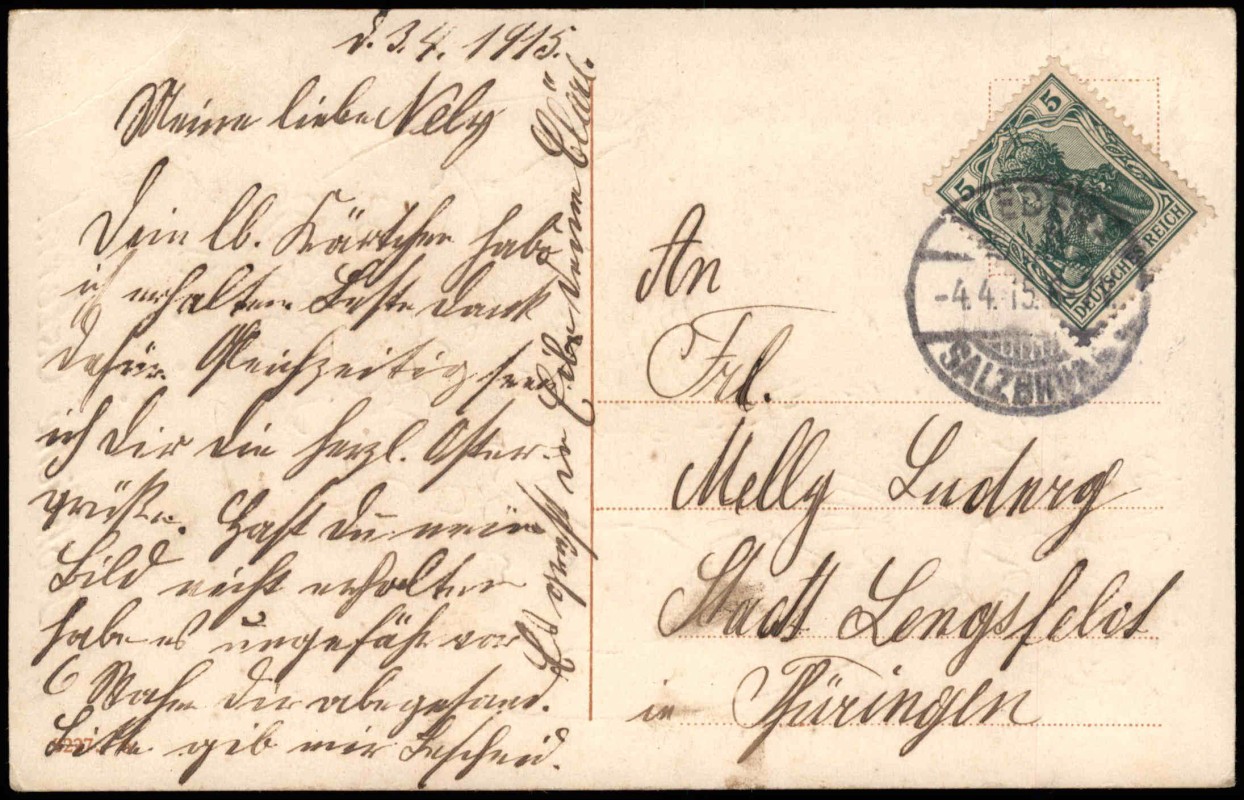 d. 3.4. 1915.
Meine liebe Nelly
Dein lb. Kärtchen habe
ich erhalten Beste Dank
dafür. Gleichzeitig sende
ich Dir die herzl. Oster-
grüße. Hast Du mein
Bild nicht erhalten
habe es ungefähr vor
6 Wochen Dir abgesand.
Bitte gib mir Bescheid.
Es grüßt Deine
An
Frl.
Melly Luderg
Stadt Lengsfeld
in Thüringen
5
5
DEUTSCHES REICH
-4.4.15.
SALZBRUNN